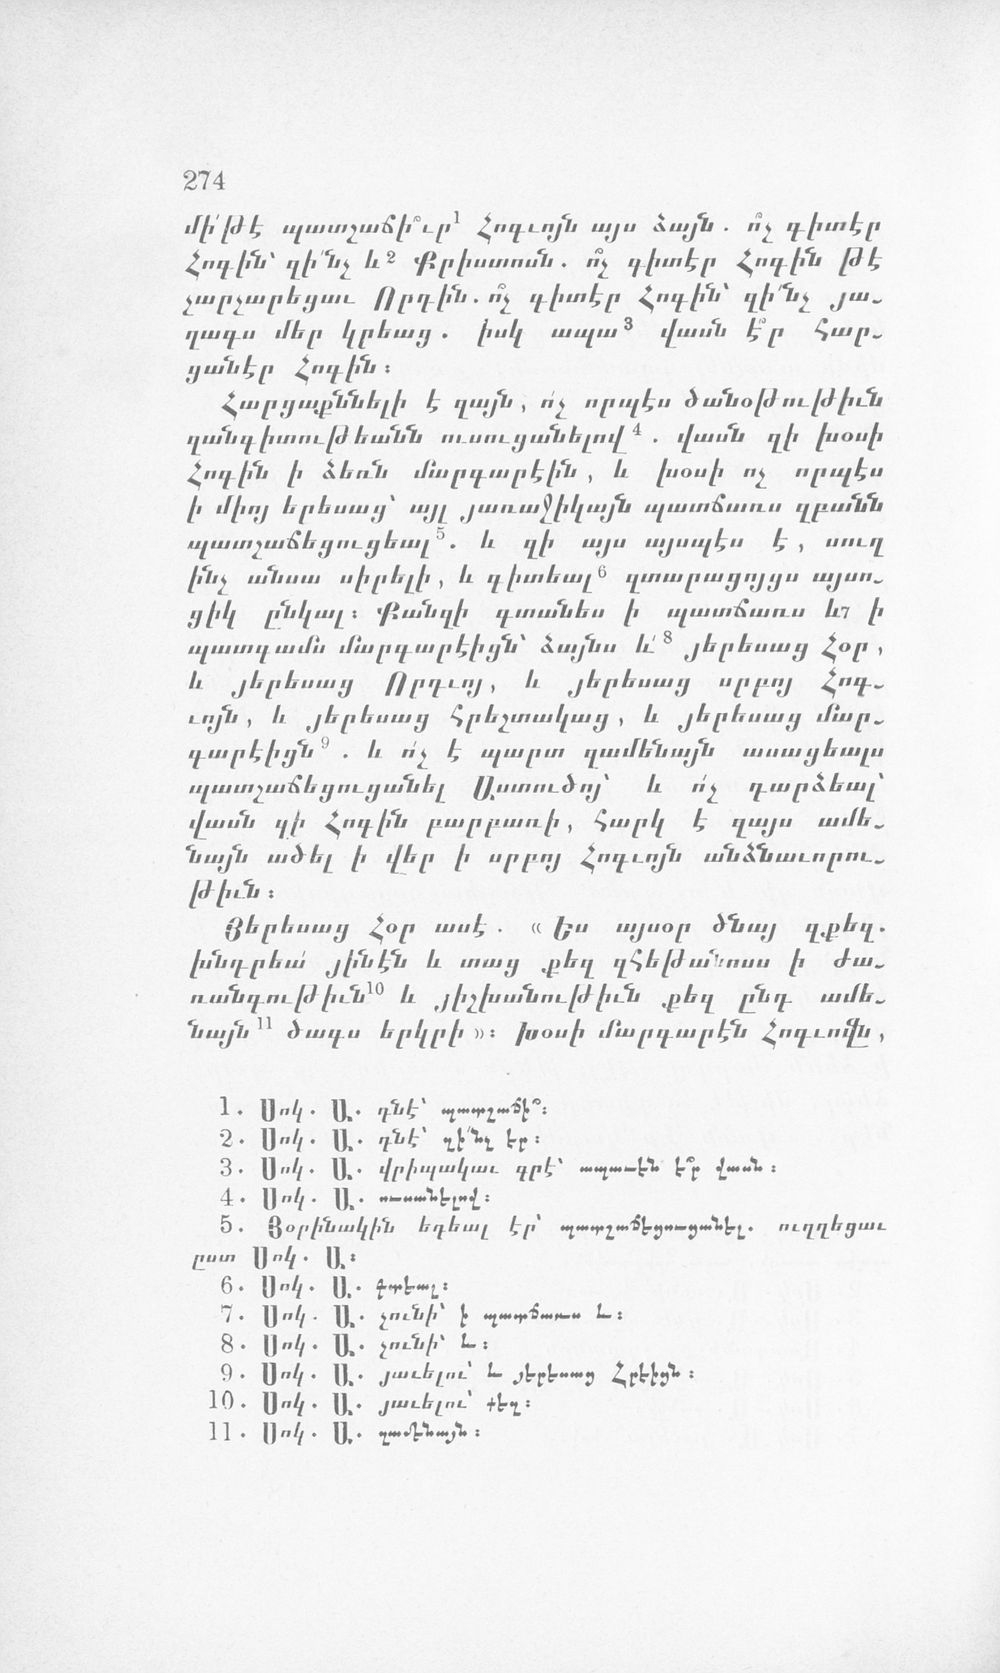 274
մի՛թէ պատշաճի՞ւր¹ Հոգւոյն այս ձայն. ո՞չ գիտէր
Հոգին՝ զի՛նչ և² Քրիստոսն. ո՞չ գիտէր Հոգին թէ
չարչարեցաւ Որդին. ո՞չ գիտէր Հոգին՝ զի՛նչ յա֊
ղագս մեր կրեաց. իսկ ապա³ վասն է՞ր հար֊
ցանէր Հոգին։
Հարցաքննելի է զայն, ո՛չ որպէս ծանօթութիւն
զանգիտութեանն ուսուցանելով⁴. վասն զի խօսի
Հոգին ի ձեռն մարգարէին, և խօսի ոչ որպէս
ի միոյ երեսաց՝ այլ յառաջիկայն պատճառս զբանն
պատշաճեցուցեալ⁵. և զի այս այսպէս է, սուղ
ինչ անսա սիրելի, և գիտեալ⁶ զտարացոյցս այսո֊
ցիկ ընկալ։ Քանզի գտանես ի պատճառս և⁷ ի
պատգամս մարգարէիցն՝ ձայնս և՛⁸ յերեսաց Հօր,
և յերեսաց Որդւոյ, և յերեսաց սրբոյ Հոգ֊
ւոյն, և յերեսաց հրեշտակաց, և յերեսաց մար֊
գարէիցն⁹. և ո՛չ է պարտ զամենայն ասացեալս
պատշաճեցուցանել Աստուծոյ՝ և ո՛չ դարձեալ՝
վասն զի Հոգին բարբառի, հարկ է զայս ամե֊
նայն ածել ի վեր ի սրբոյ Հոգւոյն անձնաւորու֊
թիւն։
Յերեսաց Հօր ասէ. «Ես այսօր ծնայ զքեզ.
խնդրեա՛ յինէն և տաց քեզ զհեթանոսս ի ժա֊
ռանգութիւն¹⁰ և յիշխանութիւն քեզ ընդ ամե֊
նայն¹¹ ծագս երկրի»։ Խօսի մարգարէն Հոգւովն,
1. Սոկ. Ա. դնէ՝ պատշաճի՞։
2. Սոկ. Ա. դնէ՝ զի՛նչ էր։
3. Սոկ. Ա. վրիպակաւ գրէ՝ ապա-էն է՞ր վասն։
4. Սոկ. Ա. ուսանելով։
5. Յօրինակին եդեալ էր՝ պատշաճեցուցանել. ուղղեցաւ
ըստ Սոկ. Ա։
6. Սոկ. Ա. գտեալ։
7. Սոկ. Ա. չունի՝ ի պատճառս և։
8. Սոկ. Ա. չունի՝ և։
9. Սոկ. Ա. յաւելու՝ և յերեսաց Հրէիցն։
10. Սոկ. Ա. յաւելու՝ քեզ։
11. Սոկ. Ա. զամենայն։